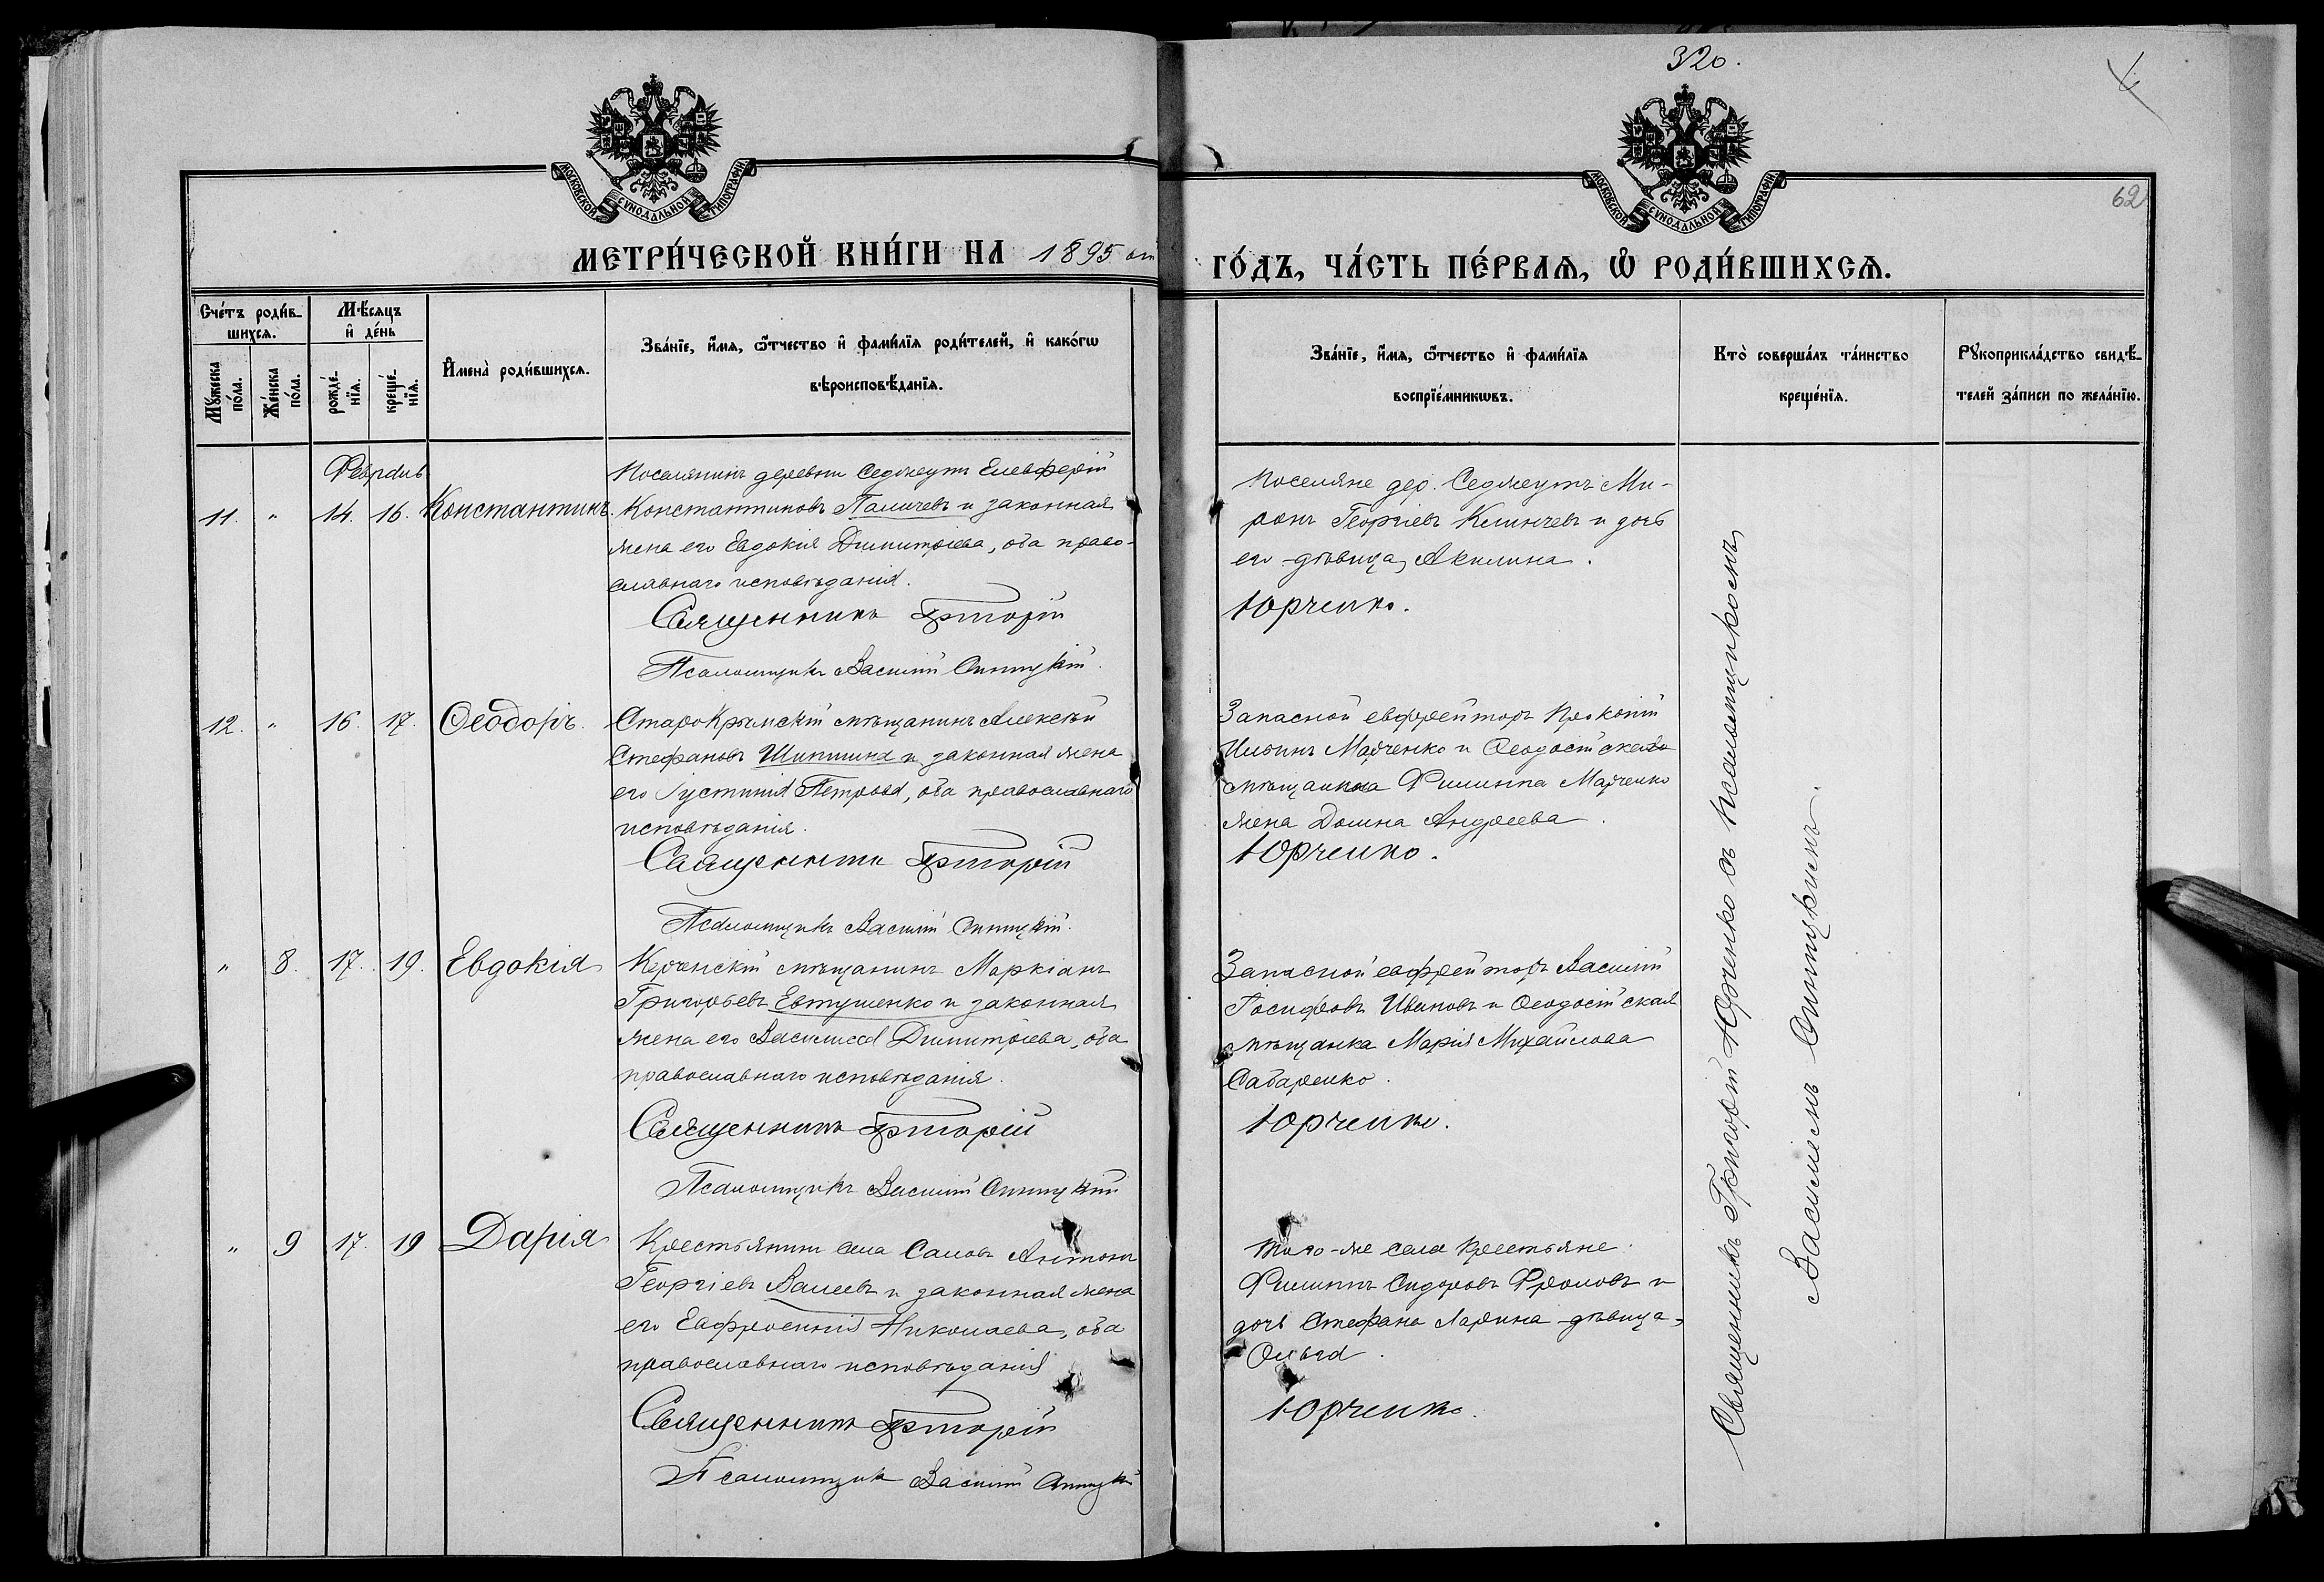 320.
62
МОСКОВСКОЙ СѴНОДАЛЬНОЙ ТИПОГРАФІИ
МОСКОВСКОЙ СѴНОДАЛЬНОЙ ТИПОГРАФІИ
МЕТРИ́ЧЕСКОЙ КНИ́ГИ НА 1895 ой
ГО́ДЪ, ЧА́СТЬ ПЕ́РВАѦ, Ѡ҆ РОДИ́ВШИХСѦ.
Счéтъ роди́в-
шихсѧ.
Мѣ́сѧцъ
и҆ де́нь
Мꙋ́жеска
по́ла.
Же́нска
по́ла.
рожде́-
нїѧ.
креще́-
нїѧ.
И҆мена̀ роди́вшихсѧ.
Зва́нїе, и҆́мѧ, ѻ҆́тчество и҆ фами́лїѧ роди́телей, и҆ како́гѡ
вѣроисповѣ́данїѧ.
Зва́нїе, и҆́мѧ, ѻ҆́тчество и҆ фами́лїѧ
воспрїе́мникѡвъ.
Кто̀ соверша́лъ та́инство
креще́нїѧ.
Рꙋкоприкла́дство свидѣ́-
телей за́писи по жела́нїю.
Февраль
11. " 14. 16. Константинъ.
Поселянинъ деревниСеджеутъ Елевферій
Константиновъ Паличевъ и законная
жена его Евдокія Димитріева, оба право-
славнаго исповѣданія.
Священникъ Григорій
Псаломщикъ Василій Синицкій.
Поселяне дер. Седжеутъ Ми-
ронъ Георгіевъ Клинчевъ и дочь
его дѣвица, Акилина.
Юрченко.
12. " 16. 17. Ѳеодоръ.
Старокрымскій мѣщанинъ Алексѣй
Стефановъ Шипшина и законная жена
его Іустинія Петрова, оба православнаго
исповѣданія.
Священникъ Григорій
Псаломщикъ Василій Синицкій.
Запасной евфрейторъ Прокопій
Ильинъ Марченко и Ѳеодосійскаго
мѣщанина Филиппа Марченко
жена Домна Андреева.
Юрченко.
" 8. 17. 19. Евдокія
Керченскій мѣщанинъ Маркіанъ
Григорьевъ Евтушенко и законная
жена его Василиса Димитріева, оба
православнаго исповѣданія.
Священникъ Григорій
Псаломщикъ Василій Синицкій
Запасной евфрейторъ Василій
Іосифовъ Ивановъ и Ѳеодосійская
мѣщанка Марія Михайлова
Сабаренко.
Юрченко.
" 9 17. 19 Дарія
Крестьянинъ села Салов Антонъ
Георгіевъ Валеевъ и законная жена
его Евфросинія Николаева, оба
православнаго исповѣданія
Священникъ Григорій
Псаломщикъ Василій Синицкій
Того-же села крестьяне
Филиппъ Сидоровъ Фроловъ и
дочь Стефана Ларина дѣвица,
Ольга.
Юрченко.
Священникъ Григорій Юрченко съ псаломщикомъ
Василіемъ Синицкимъ.